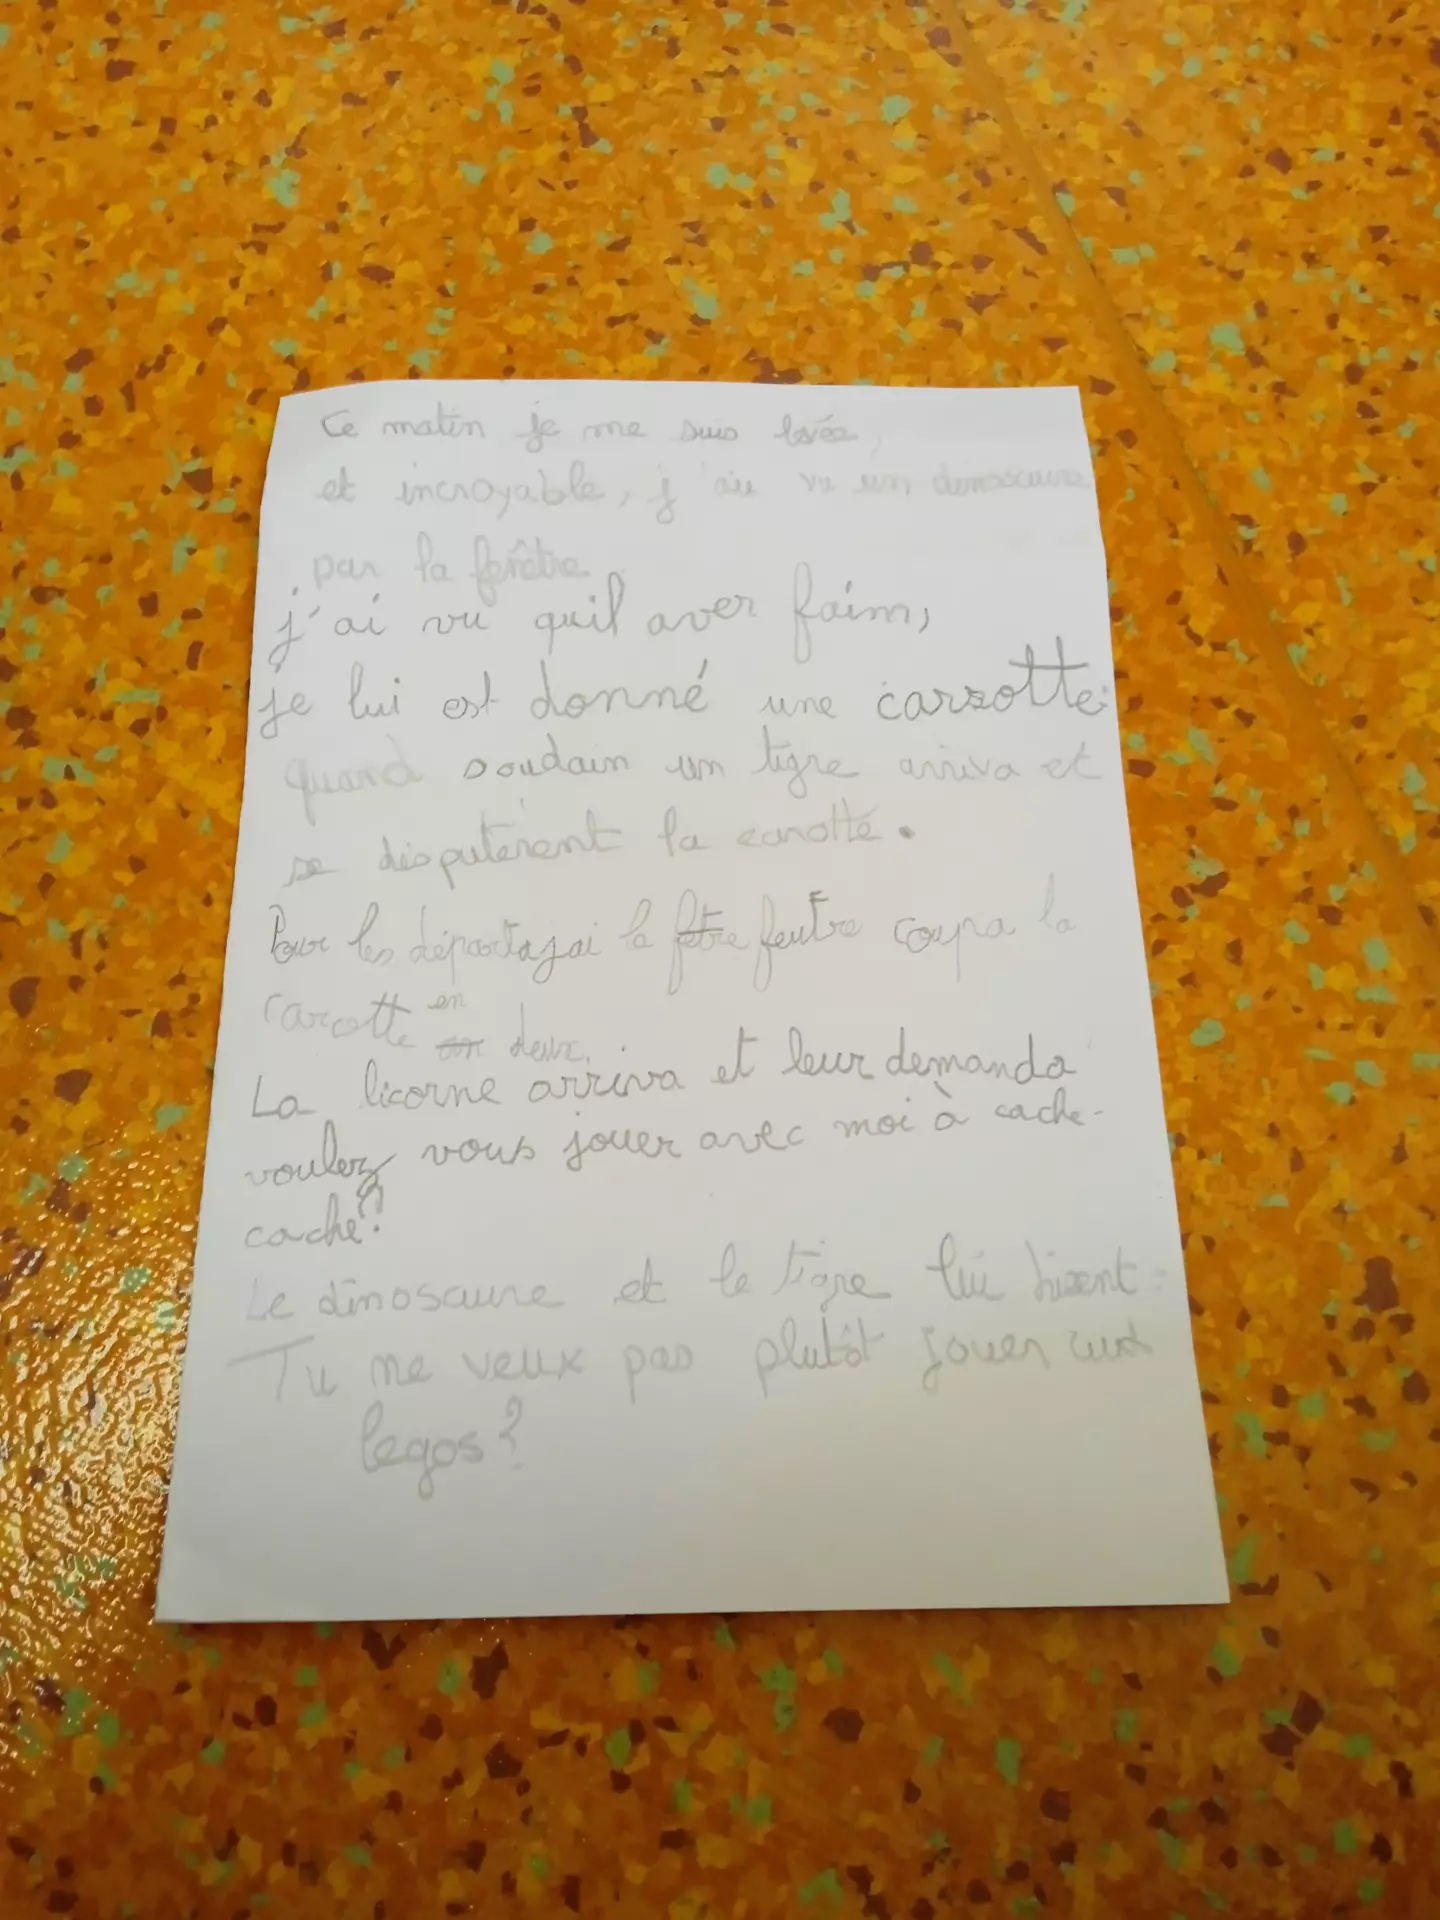 Ce matin je me suis levée,
et incroyable, j'ai vu un dinosaure
par la fenêtre.
j'ai vu quil aver faim,
je lui est donné une carzotte.
quand soudain un tigre arriva et
se disputèrent la carotte.
Pour les départajai le fetre feutre coupa la
carotte en deux.
La licorne arriva et leur demanda
voulez vous jouer avec moi à cache-
cache?
Le dinosaure et le tigre lui disent :
Tu ne veux pas plutôt jouer aux
legos?